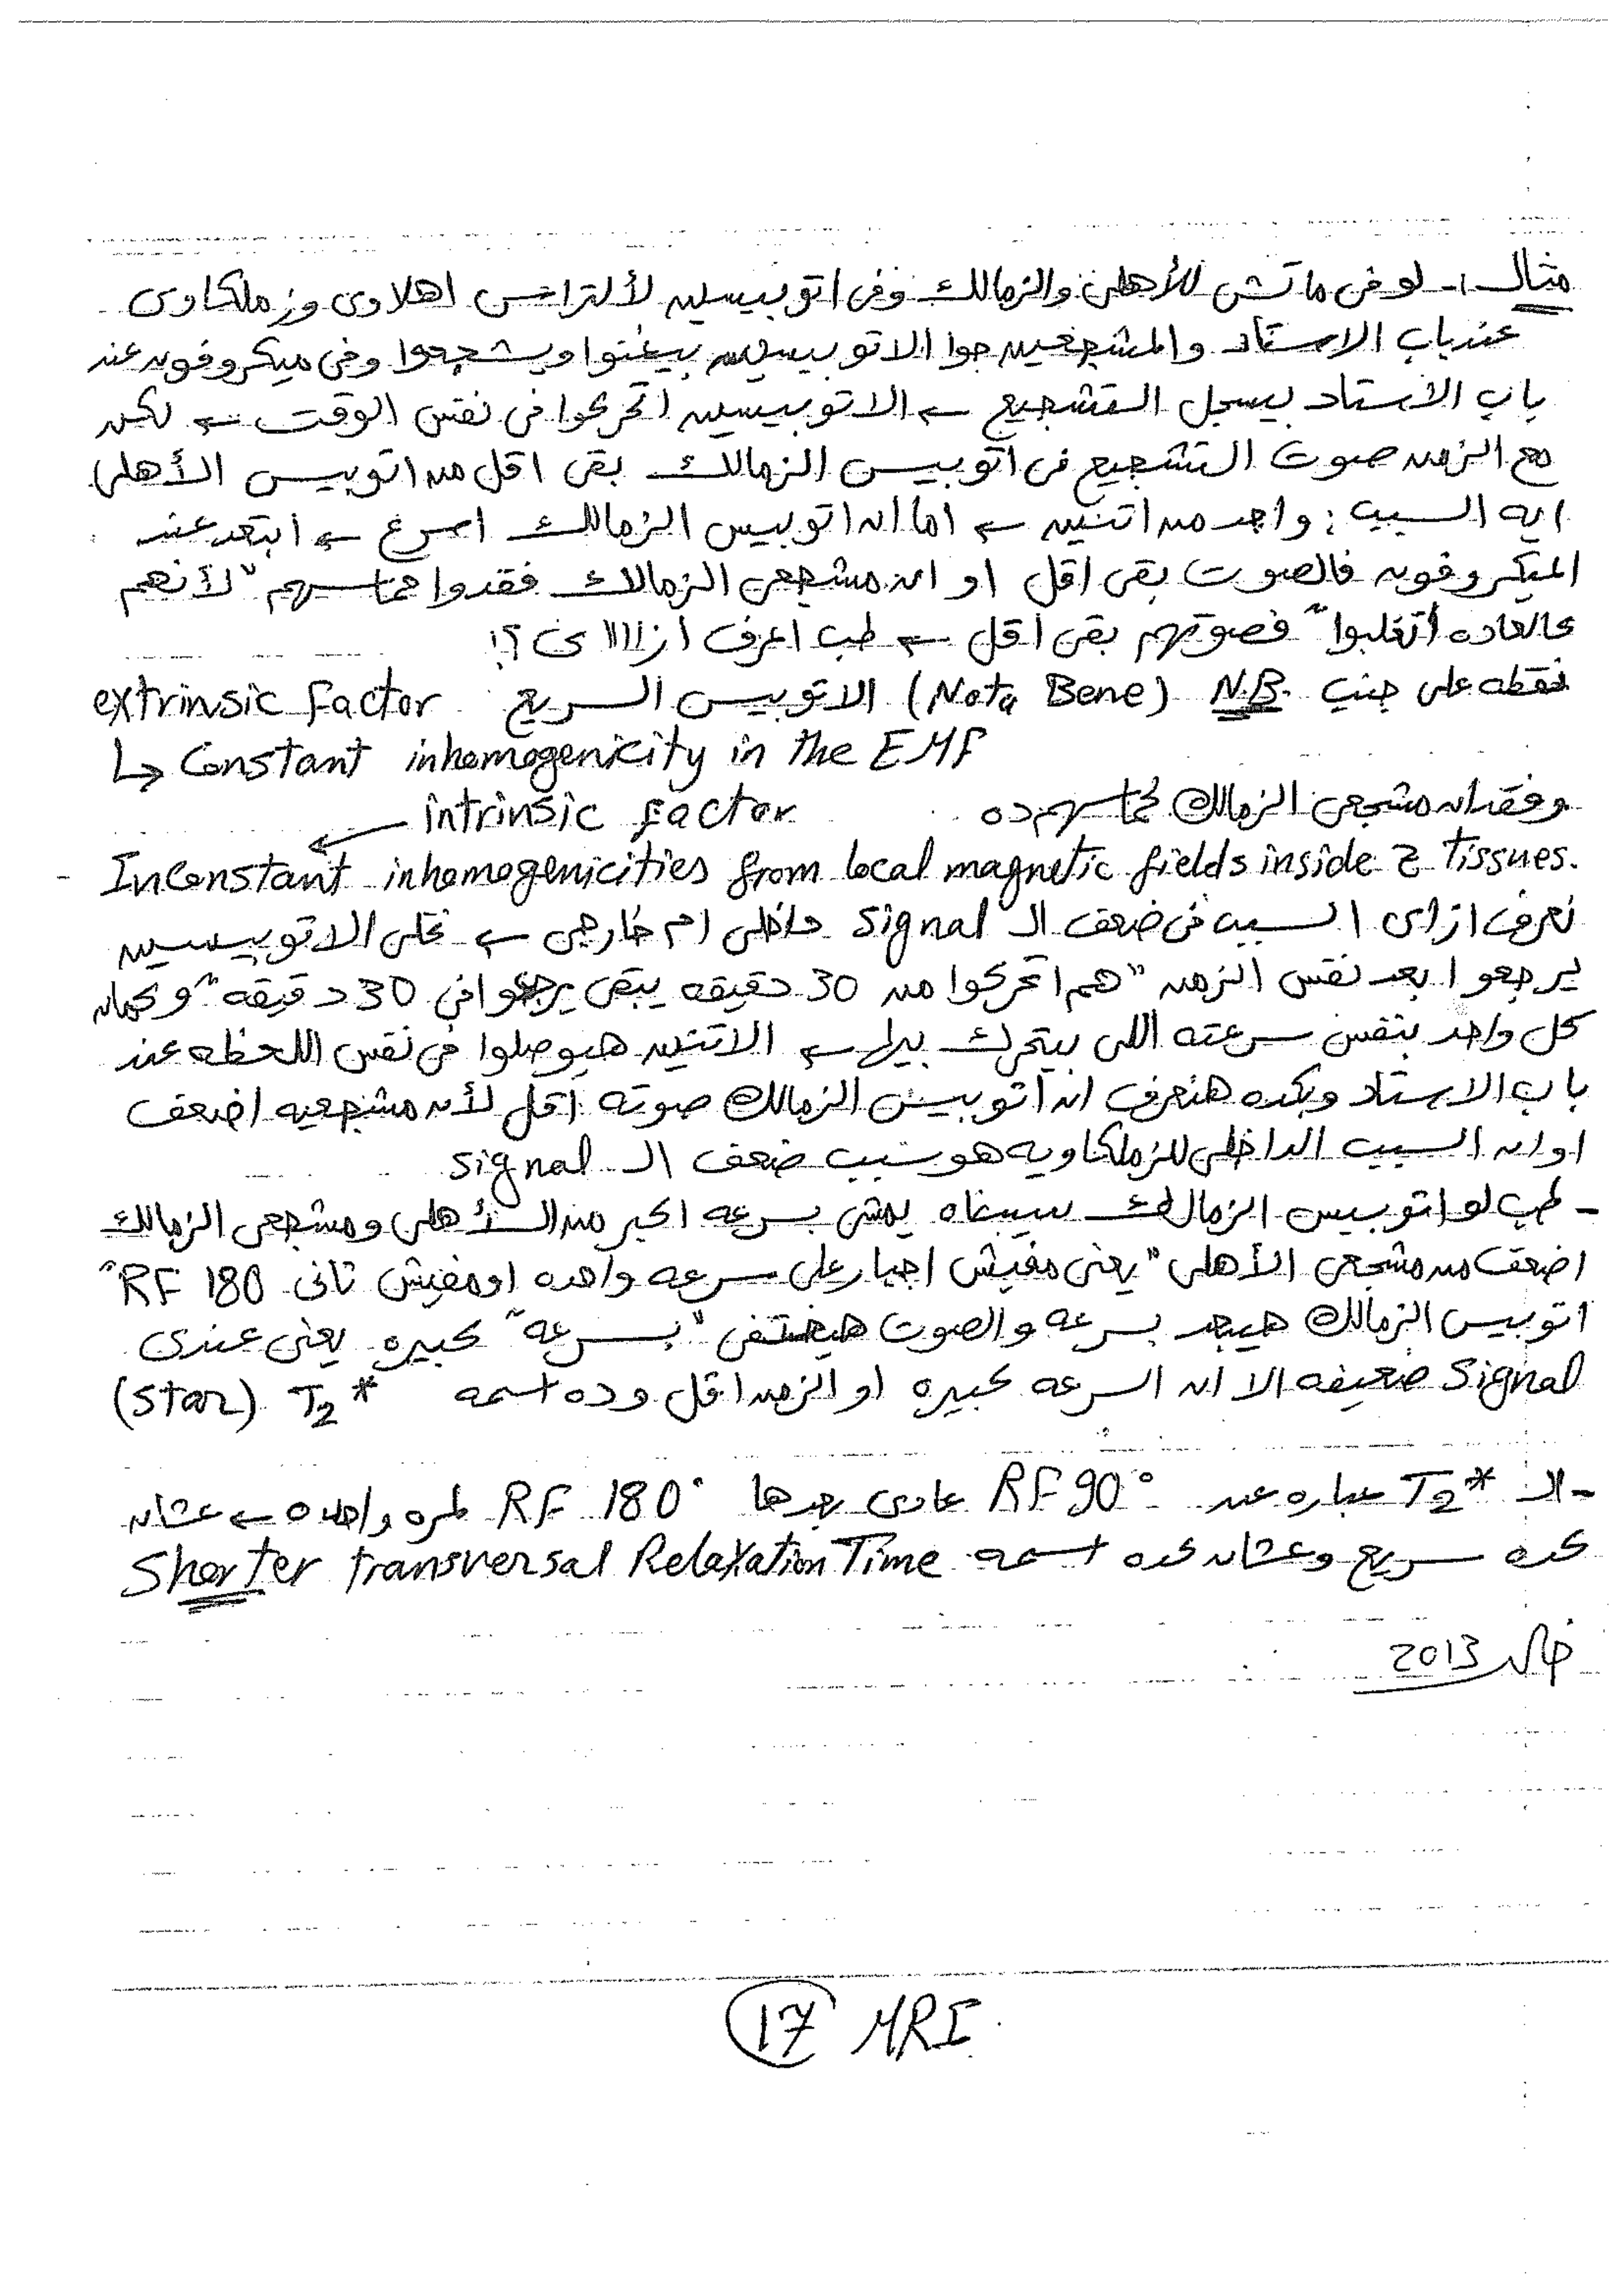 مثال :- لو فى ماتش للأهلى والزمالك وفى اتوبيسين لألتراس اهلاوى وزملكاوى
عند باب الاستاد والمشجعين جوا الاتوبيسين بيغنوا ويشجعوا وفى ميكروفون عند
باب الاستاد بيسجل التشجيع ← الاتوبيسين اتحركوا فى نفس الوقت ← لكن
مع الزمن صوت التشجيع فى اتوبيس الزمالك بقى اقل من اتوبيس الأهلى
ايه السبب : واحد من اتنين ← اما ان اتوبيس الزمالك اسرع ← ابتعد عند
الميكروفون فالصوت بقى اقل او ان مشجعى الزمالك فقدوا حماسهم "لأنهم
كالعاده اتغلبوا" فصوتهم بقى أقل ← طب اعرف ازااااى ؟!
نقطه على جنب N.B. (Nota Bene) الاتوبيس السريع extrinsic factor
↳ Constant inhomogenicity in the EMF
وفقدان مشجعى الزمالك لحماسهم ده intrinsic factor ←
Inconstant inhomogenicities from local magnetic fields inside tissues.
نعرف ازاى السبب فى ضعف الـ signal داخلى ام خارجى ← نخلى الاتوبيسين
يرجعوا بعد نفس الزمن "هم اتحركوا من 30 دقيقه يبقى يرجعوا فى 30 دقيقه" وكمان
كل واحد بنفس سرعته اللى بيتحرك بيها ← الاتنين هيوصلوا فى نفس اللحظه عند
باب الاستاد وبكده هنعرف ان اتوبيس الزمالك صوته أقل لأن مشجعيه اضعف
او ان السبب الداخلى للزملكاويه هو سبب ضعف الـ signal
- طب لو اتوبيس الزمالك سيبناه يمشى بسرعه اكبر من الأهلى ومشجعى الزمالك
اضعف من مشجعى الأهلى "يعنى مفيش اجبار على سرعه واحده او مفيش تانى RF 180"
اتوبيس الزمالك هيبعد بسرعه والصوت هيختفى "بسرعه" كبيره يعنى عندى
Signal ضعيفه الا ان السرعه كبيره او الزمن اقل وده اسمه T2* (star)
- الـ T2* عباره عن RF 90° عادى بعدها RF 180° لمره واحده ← عشان
كده سريع وعشان كده اسمه Shorter transversal Relaxation Time
خالد 2013
17 MRI